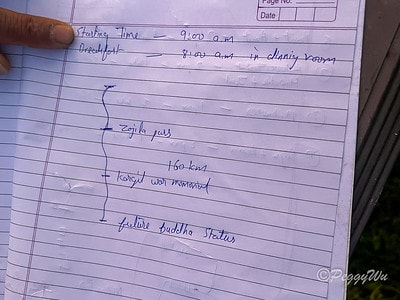 Page No.
Date
Starting Time — 9:00 a.m
Breakfast — 8:00 a.m in dinniy room
Zojila pass
160 km
Kargil war memorial
future buddha status
©PeggyWu